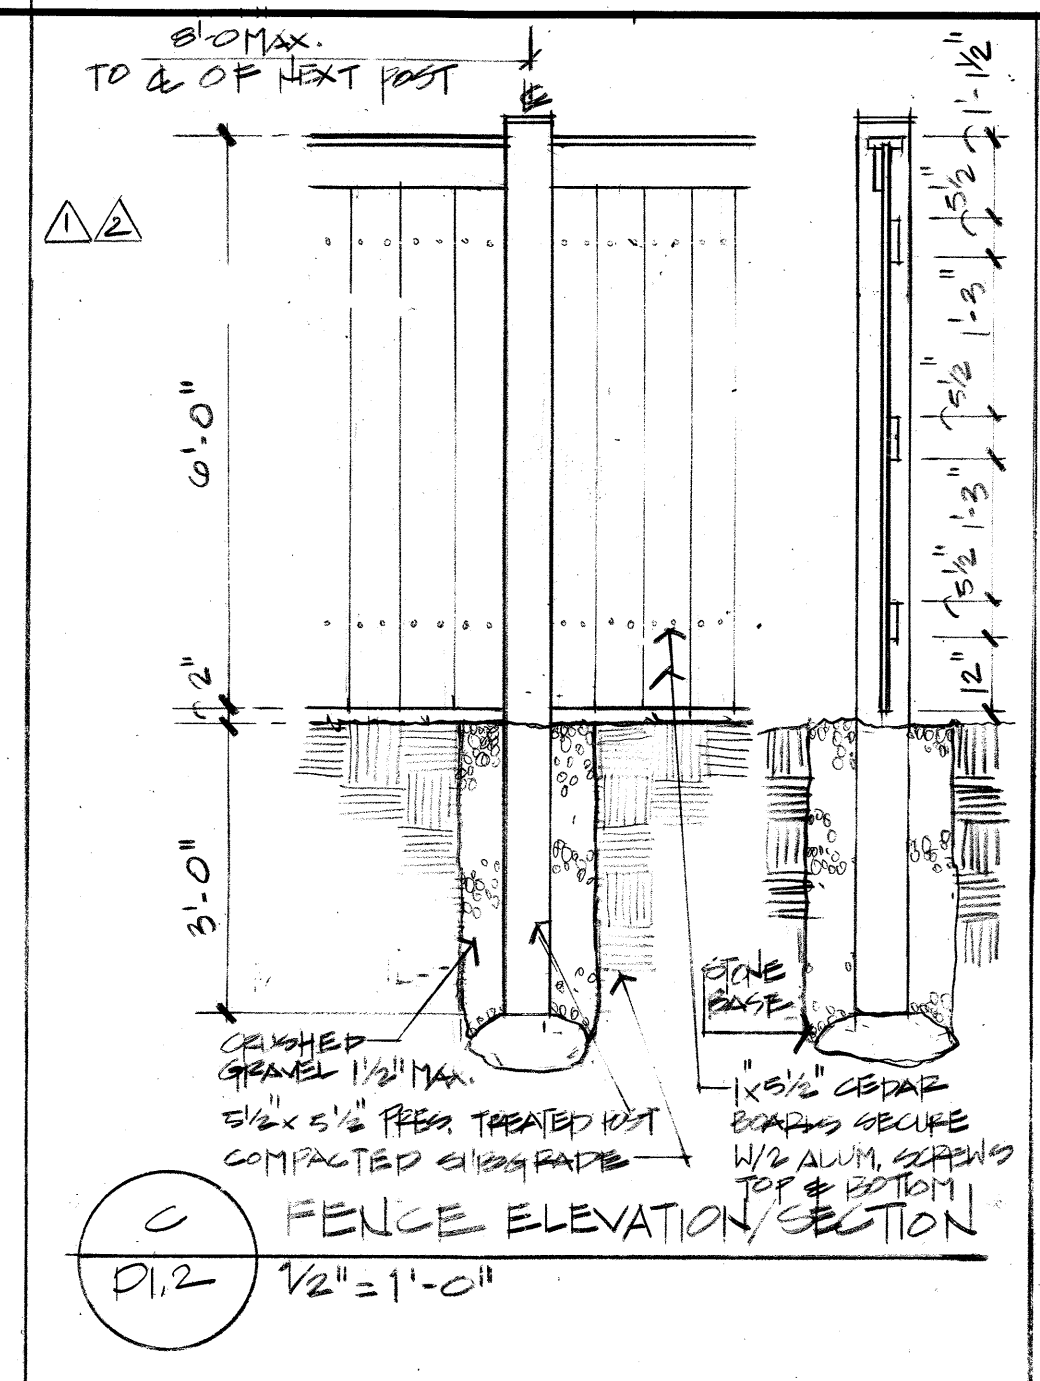 8'-0 MAX.
TO ℄ OF NEXT POST
℄
1 2
6'-0"
2"
3'-0"
1'-1 1/2"
5 1/2"
1'-3"
5 1/2"
1'-3"
5 1/2"
12"
STONE
BASE
CRUSHED
GRAVEL 1 1/2" MAX.
5 1/2" x 5 1/2" PRES. TREATED POST
COMPACTED SUBGRADE
1" x 5 1/2" CEDAR
BOARDS SECURE
W/2 ALUM. SCREWS
TOP & BOTTOM
C
FENCE ELEVATION/SECTION
D1.2
1/2" = 1'-0"